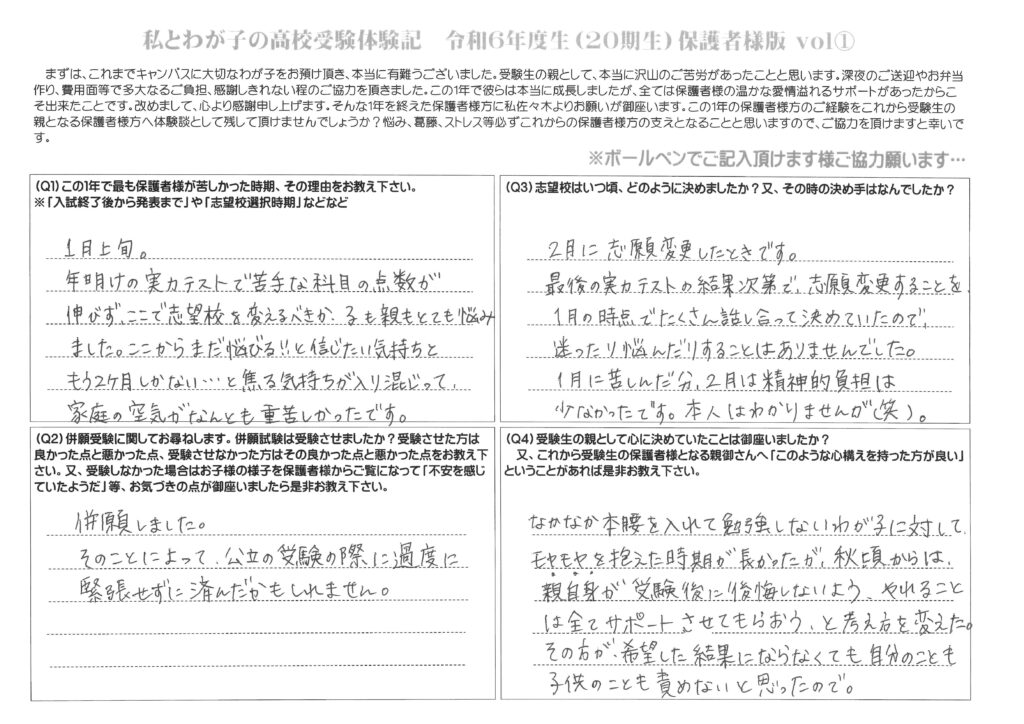 私とわが子の高校受験体験記　令和6年度生(20期生)保護者様版 vol①
まずは、これまでキャンパスに大切なわが子をお預け頂き、本当に有難うございました。受験生の親として、本当に沢山のご苦労があったことと思います。深夜のご送迎やお弁当
作り、費用面等で多大なるご負担、感謝しきれない程のご協力を頂きました。この1年で彼らは本当に成長しましたが、全ては保護者様の温かな愛情溢れるサポートがあったからこ
そ出来たことです。改めまして、心より感謝申し上げます。そんな1年を終えた保護者様方に私佐々木よりお願いが御座います。この1年の保護者様方のご経験をこれから受験生の
親となる保護者様方へ体験談として残して頂けませんでしょうか？悩み、葛藤、ストレス等必ずこれからの保護者様方の支えとなることと思いますので、ご協力を頂けますと幸いで
す。
※ボールペンでご記入頂けます様ご協力願います…
(Q1)この1年で最も保護者様が苦しかった時期、その理由をお教え下さい。
※「入試終了後から発表まで」や「志望校選択時期」などなど
1月上旬。
年明けの実力テストで苦手な科目の点数が
伸びず、ここで志望校を変えるべきか、子も親もとても悩み
ました。ここからまだ伸びる!!と信じたい気持ちと
もう2ヶ月しかない…と焦る気持ちが入り混じって、
家庭の空気がなんとも重苦しかったです。
(Q3)志望校はいつ頃、どのように決めましたか？又、その時の決め手はなんでしたか？
2月に志願変更したときです。
最後の実力テストの結果次第で、志願変更することを、
1月の時点でたくさん話し合って決めていたので、
迷ったり悩んだりすることはありませんでした。
1月に苦しんだ分、2月は精神的負担は
少なかったです。本人はわかりませんが(笑)。
(Q2)併願受験に関してお尋ねします。併願試験は受験させましたか？受験させた方は
良かった点と悪かった点、受験させなかった方はその良かった点と悪かった点をお教え下
さい。又、受験しなかった場合はお子様の様子を保護者様からご覧になって「不安を感じ
ていたようだ」等、お気づきの点が御座いましたら是非お教え下さい。
併願しました。
そのことによって、公立の受験の際に過度に
緊張せずに済んだかもしれません。
(Q4)受験生の親として心に決めていたことは御座いましたか？
又、これから受験生の保護者様となる親御さんへ「このような心構えを持った方が良い」
ということがあれば是非お教え下さい。
なかなか本腰を入れて勉強しないわが子に対して、
モヤモヤを抱えた時期が長かったが、秋頃からは、
親自身が受験後に後悔しないよう、やれること
は全てサポートさせてもらおう、と考え方を変えた。
その方が、希望した結果にならなくても自分のことも
子供のことも責めないと思ったので。